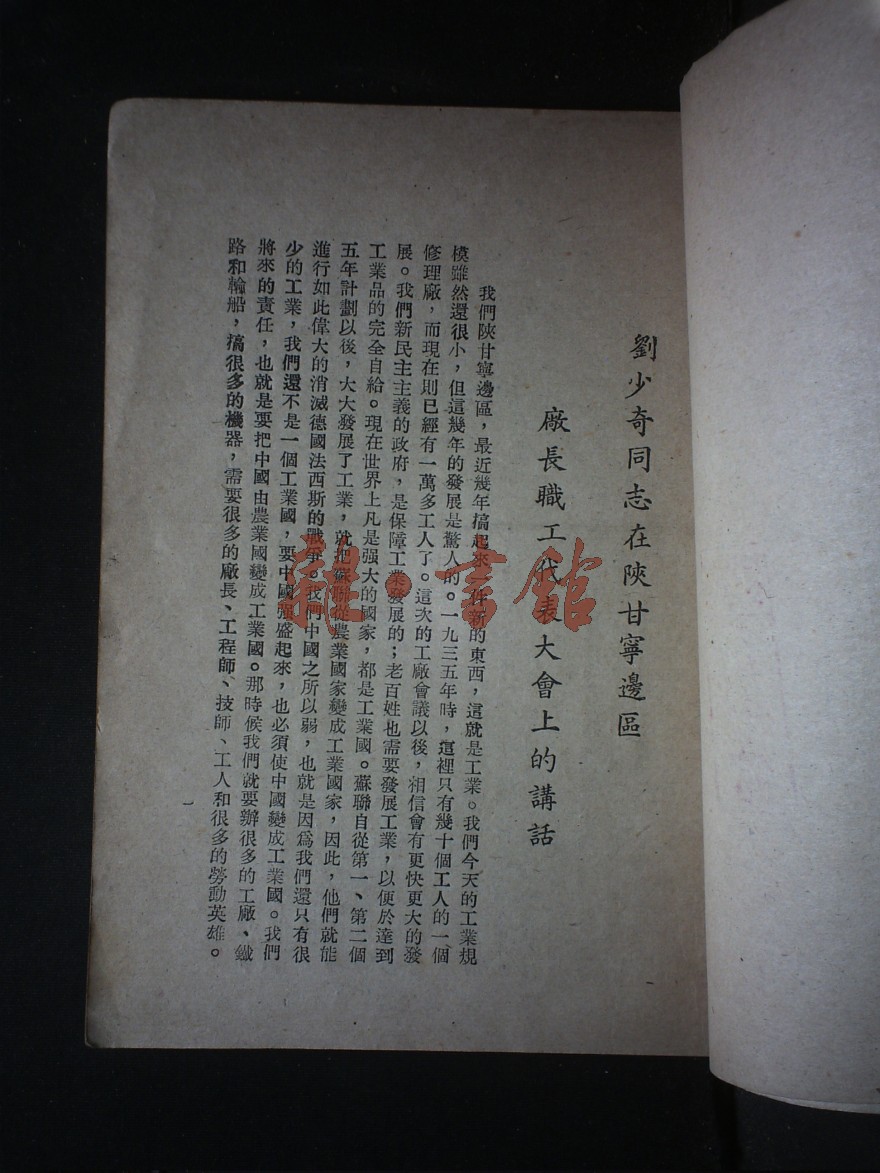 劉少奇同志在陝甘寧邊區
廠長職工代表大會上的講話
我們陝甘寧邊區，最近幾年搞起來一種新的東西，這就是工業。我們今天的工業規
模雖然還很小，但這幾年的發展是驚人的。一九三五年時，這裡只有幾十個工人的一個
修理廠，而現在則已經有一萬多工人了。這次的工廠會議以後，相信會有更快更大的發
展。我們新民主主義的政府，是保障工業發展的；老百姓也需要發展工業，以便於達到
工業品的完全自給。現在世界上凡是强大的國家，都是工業國。蘇聯自從第一、第二個
五年計劃以後，大大發展了工業，就把蘇聯從農業國家變成工業國家，因此，他們就能
進行如此偉大的消滅德國法西斯的戰爭。我們中國之所以弱，也就是因爲我們還只有很
少的工業，我們還不是一個工業國，要中國强盛起來，也必須使中國變成工業國。我們
將來的責任，也就是要把中國由農業國變成工業國。那時候我們就要辦很多的工廠、鐵
路和輪船，搞很多的機器，需要很多的廠長、工程師、技師、工人和很多的勞動英雄。
一
雜·書館